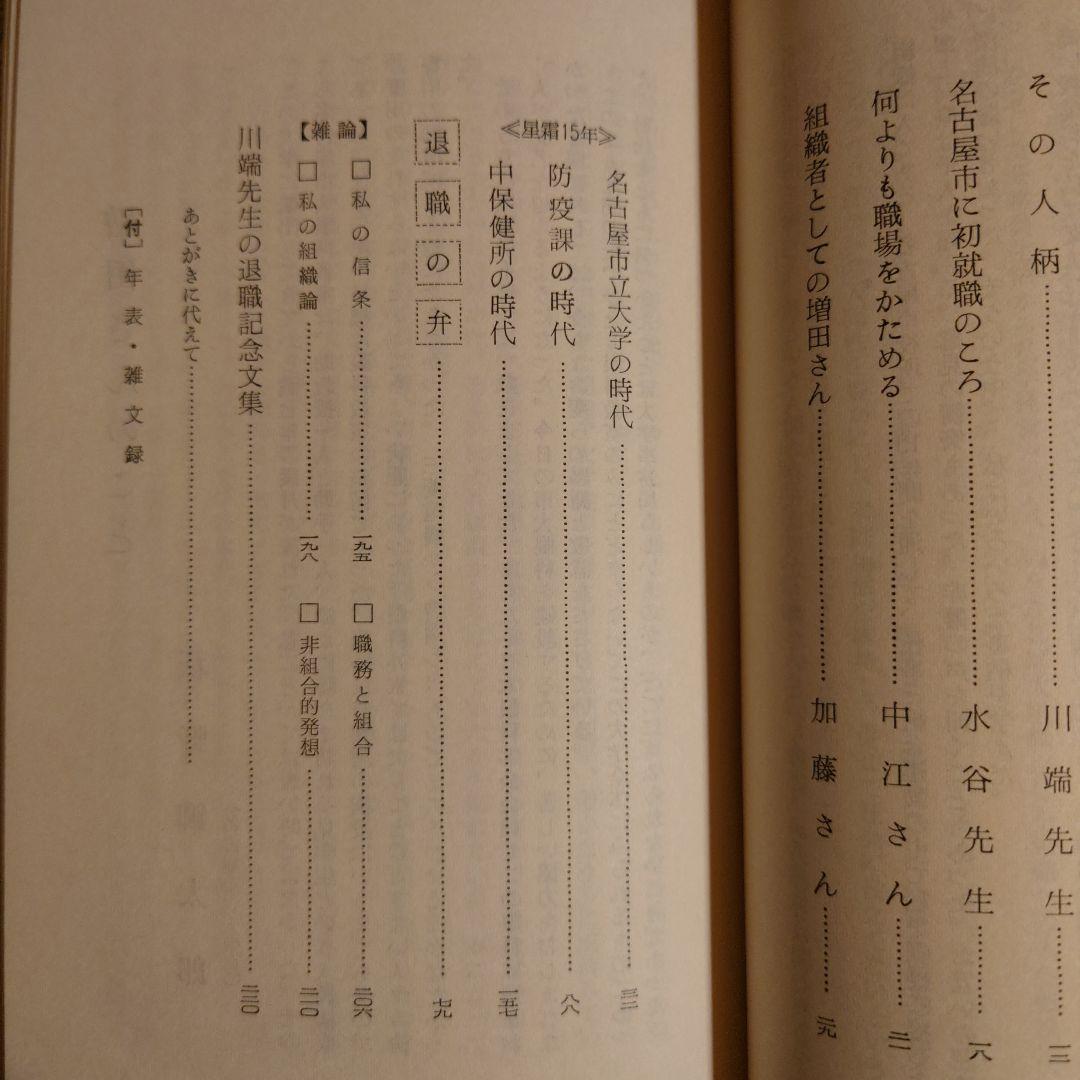 その人柄……川端先生……一三
名古屋市に初就職のころ……水谷先生……一八
何よりも職場をかためる……中江さん……二一
組織者としての増田さん……加藤さん……二九
≪星霜15年≫
名古屋市立大学の時代……三二
防疫課の時代……八八
中保健所の時代……一五七
退職の弁……一七九
【雑論】
□私の信条……一九五 □職務と組合……二〇六
□私の組織論……一九八 □非組合的発想……二一〇
川端先生の退職記念文集……二二〇
あとがきに代えて……
［付］年表・雑文録